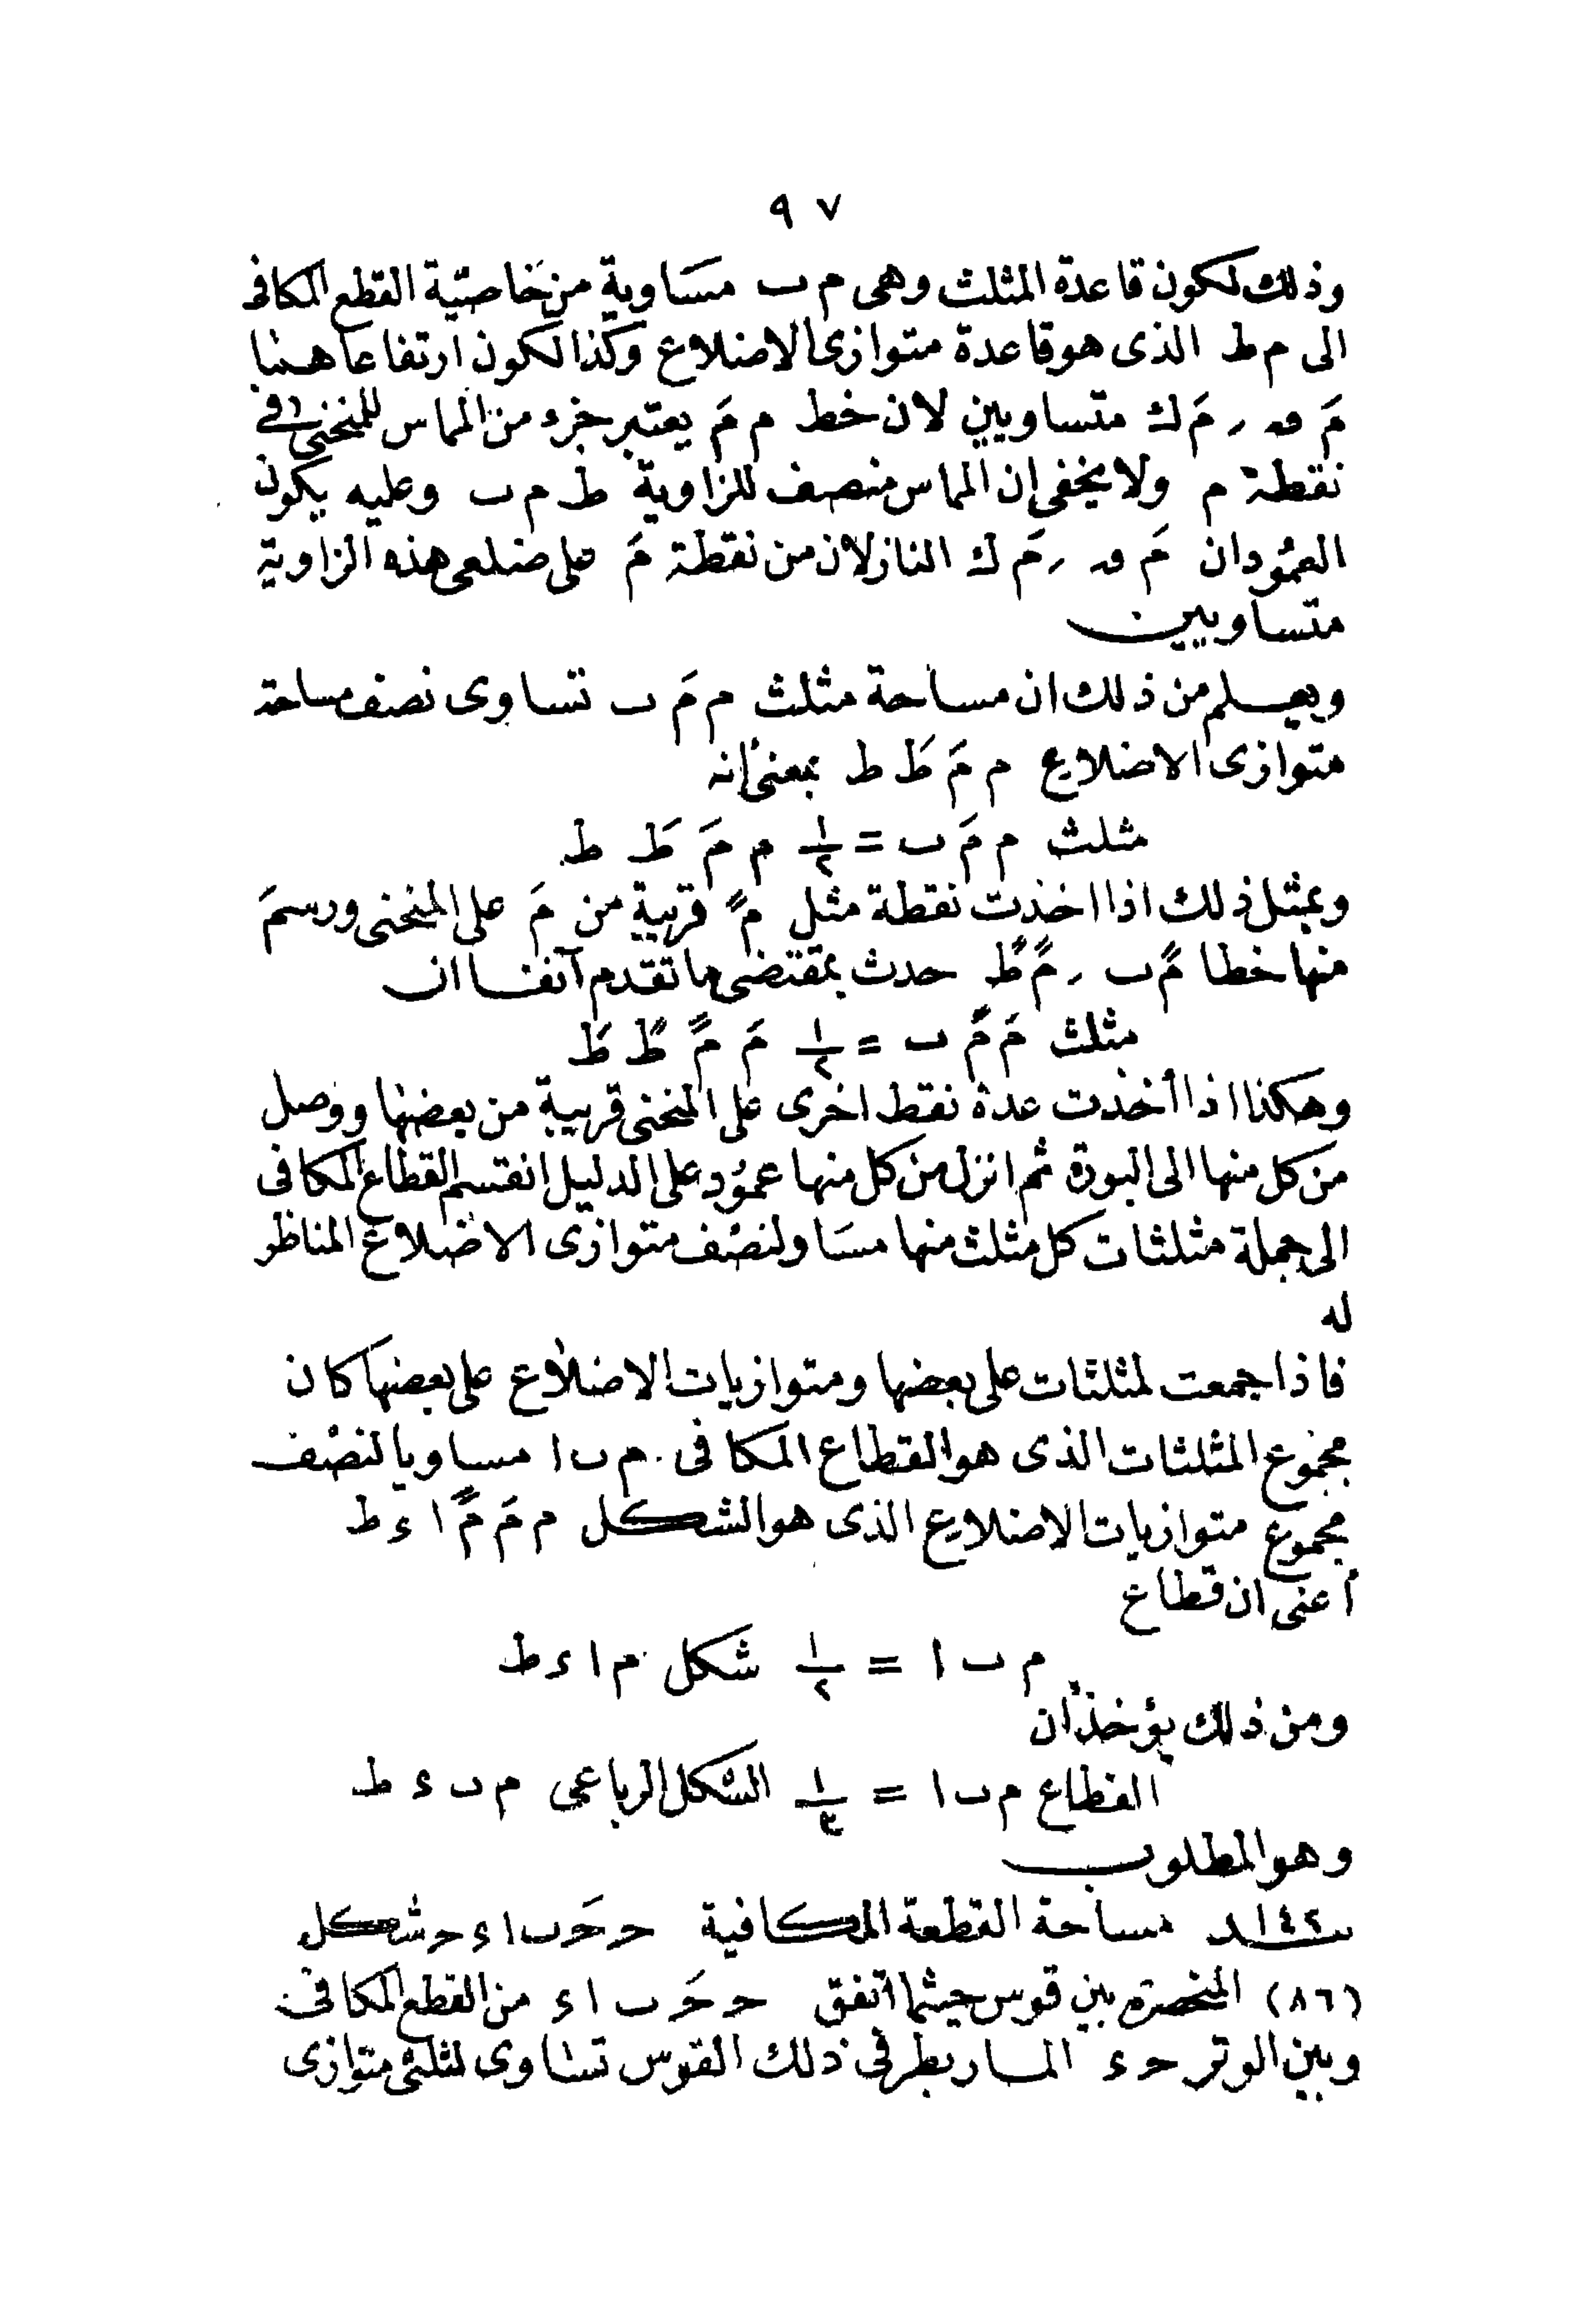 ٩٧
وذلك لكون قاعدة المثلث وهى م ٮ مساوية من خاصّية القطع المكافى
الى م ط الذى هو قاعدة متوازى الاضلاع وكذا لكون ارتفاعاهما
مَ ں ر مَ ك متساويين لان خط م مَ يعتبر جزء من المماس للمنحنى فى
نقطة م ولا يخفى ان المماس منصف للزاوية ط م ٮ وعليه يكون
العمودان مَ ں ر مَ ك النازلان من نقطة مَ على ضلعى هذه الزاوية
متساويين
ويعلم من ذلك ان مساحة مثلث م مَ ٮ تساوى نصف مساحة
متوازى الاضلاع م مَ طَ ط بمعنى أنه
مثلث م مَ ٮ = ١/٢ م مَ طَ ط
وبمثل ذلك اذا اخذت نقطة مثل مً قريبة من مَ على المنحنى ورسم
منها خطا مً ٮ ر مً طً حدث بمقتضى ما تقدم آنفا ان
مثلث مَ مً ٮ = ١/٢ مَ مً طً طَ
وهكذا اذا أخذت عدة نقط اخرى على المنحنى قريبة من بعضها ووصل
من كل منها الى البورة ثم انزل من كل منها عمود على الدليل انقسم القطاع المكافى
الى جملة مثلثات كل مثلث منها مساو لنصف متوازى الاضلاع المناظر
له
فاذا جمعت لمثلثات على بعضها ومتوازيات الاضلاع على بعضها كان
مجموع المثلثات الذى هو القطاع المكافى م ٮ ا مساويا لنصف
مجموع متوازيات الاضلاع الذى هو الشكل م مَ مً ا ء ط
أعنى ان قطاع
م ٮ ا = ١/٢ شكل م ا ء ط
ومن ذلك يؤخذ أن
القطاع م ٮ ا = ١/٣ الشكل الرباعى م ٮ ء ط
وهو المطلوب
١٤٢ مساحة القطعة المكافية حـ حَـ ٮ ا ء حـ شكل
(٨٦) المنحصرة بين قوس حيثما اتفق حـ حَـ ٮ ا ء من القطع المكافى
وبين الوتر حـ ء المار بطرفى ذلك القوس تساوى لثلثى متوازى